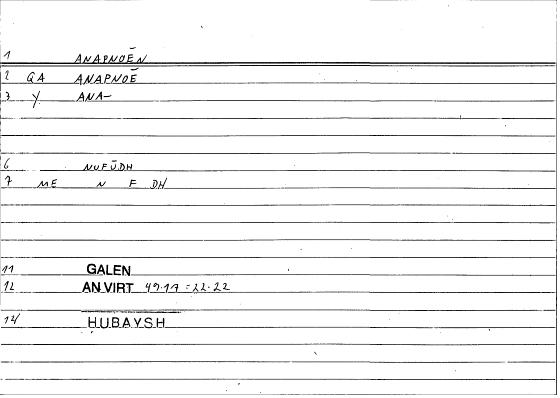 1 ANAPNOĒN
2 GA ANAPNOĒ
3 Y ANA-
6 NUFŪDH
7 ME N F DH
11 GALEN
12 AN VIRT 49.17 = 22.22
14 HUBAYSH